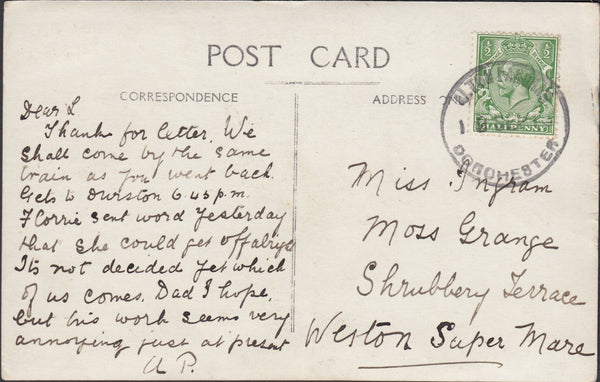 POST CARD
CORRESPONDENCE
ADDRESS
HALFPENNY
DORCHESTER
Dear L
Thanks for letter. We
shall come by the same
train as you went back.
Gets to Durston 6.45 p.m.
Florrie sent word yesterday
that she could get off alryt
Its not decided yet which
of us comes. Dad I hope,
but his work seems very
annoying just at present
A P.
Miss Ingram
Moss Grange
Shrubbery Terrace
Weston Super Mare